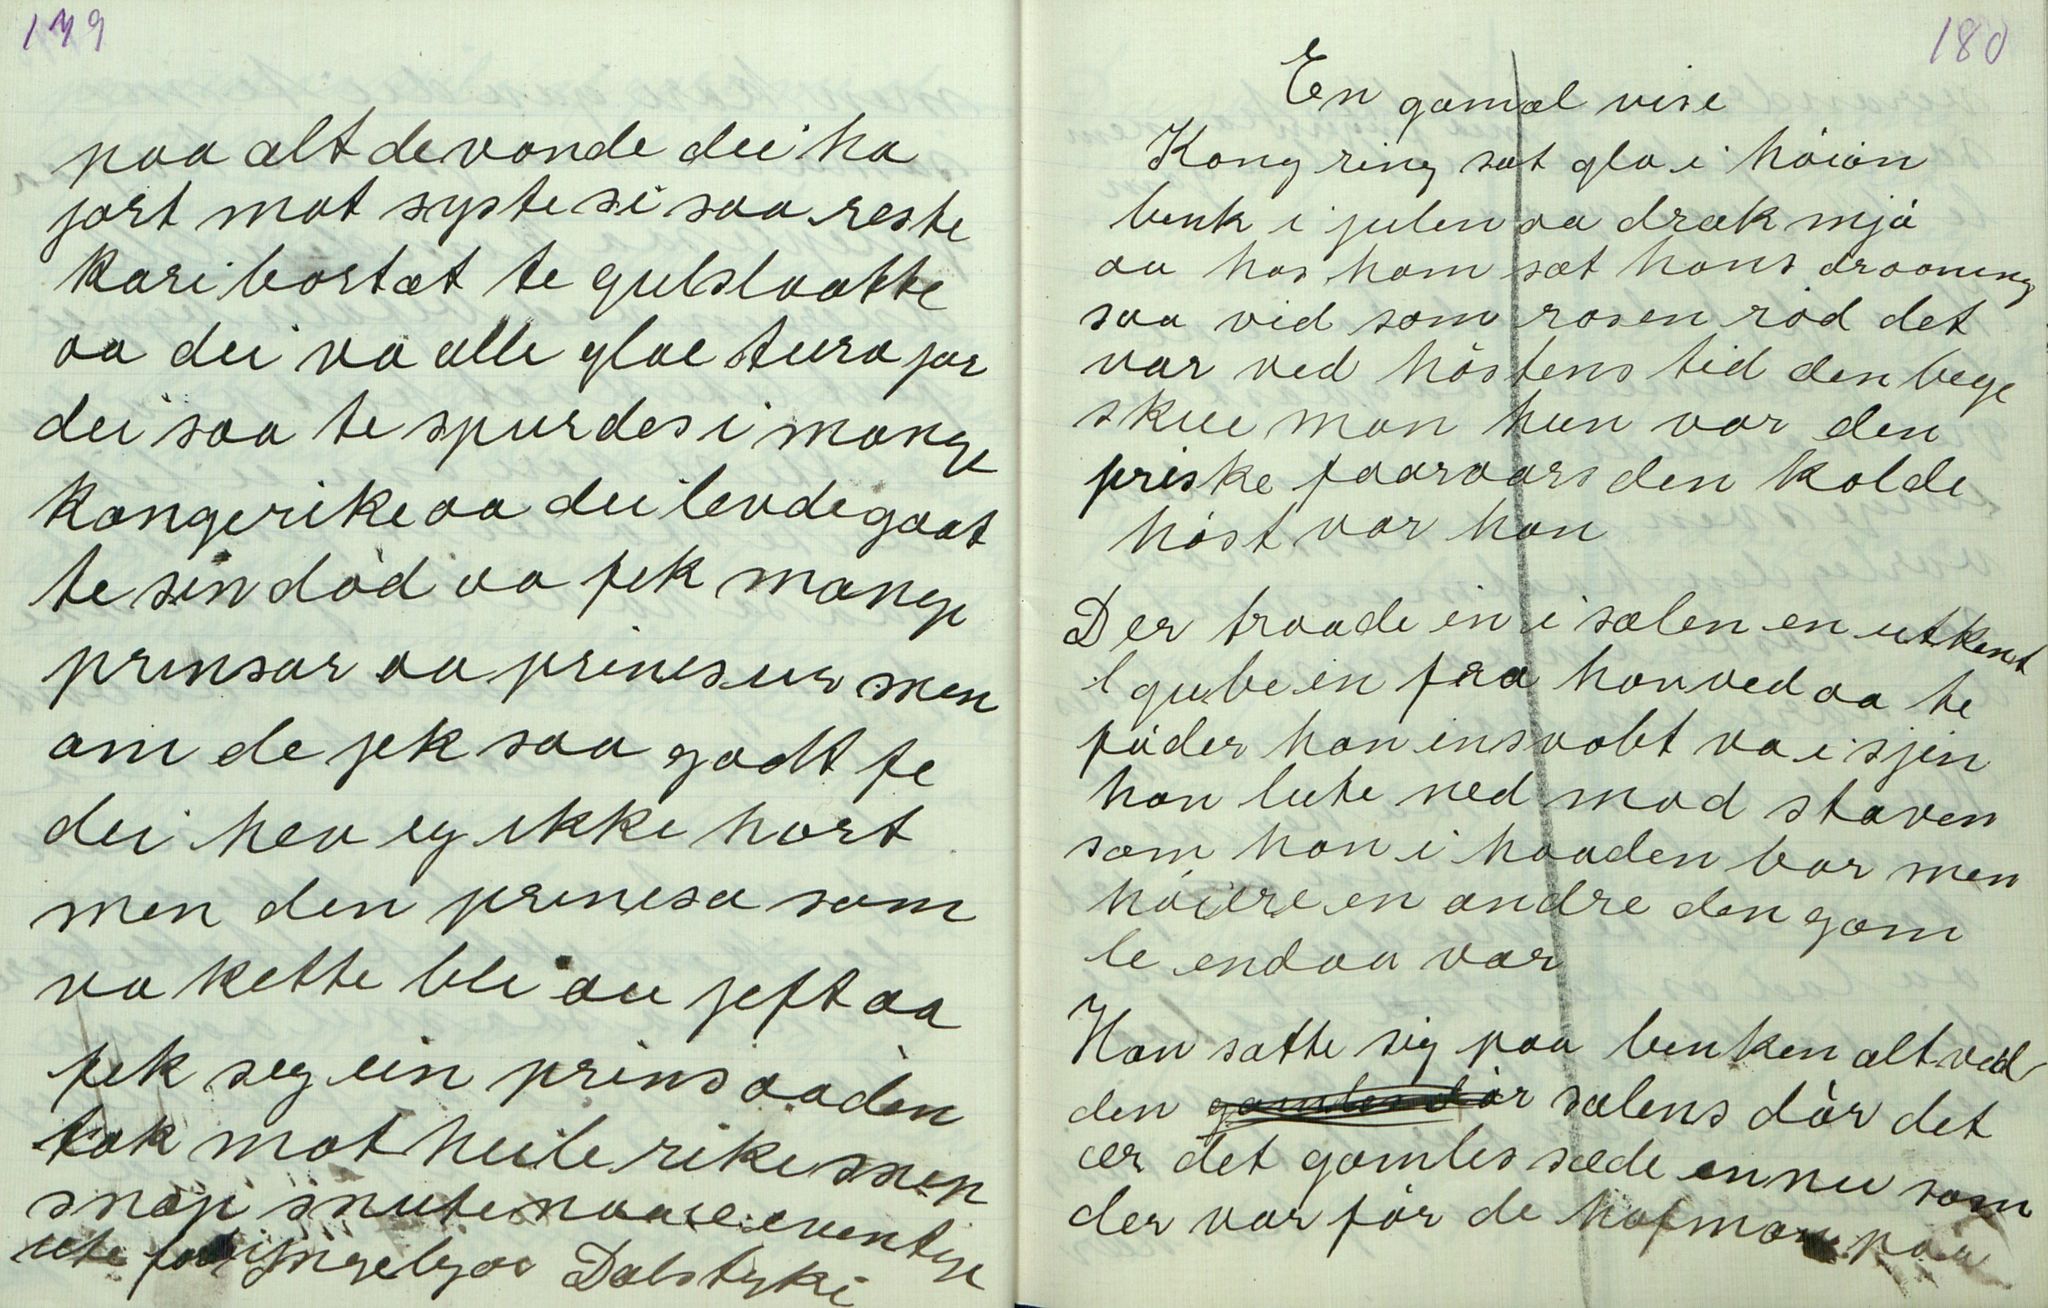 179
paa alt de vonde dei ha
jort mot syste si saa reste
Kari bortat te gulslaatte
aa dei va alle glae stura jor
dei saa te spurdes i mange
Kongerike aa dei levde gaat
te sin död aa fek mange
prinsar aa prinesur men
om de jek saa godt fe
dei hev eg ikke hort
men den prinesa som
va kette blei au jeft aa
fek seg ein prins aa den
tok mot heile rike men
snip snute naase eventyre
ute Dalstyki
180
En gamal vise
Kong ring sat gla i höien
benk i julen aa drak mjö
aa hos ham sat hans drooning
saa vid som rosen röd det
var ved höstens tid den bege
skue man hun var den
friske faarvaars den kolde
höst var han
Der traade in i salen en utkent
l gube en fra hovved aa te
föder han insvöbt va i sjin
han lute ned mod staven
som han i haaden bar men
höiere en andre den gam
le endaa var
Han satte sig paa benken alt ved
den salens dör det
ær det gamles sæde ennu som
der var för de hofmæn paa